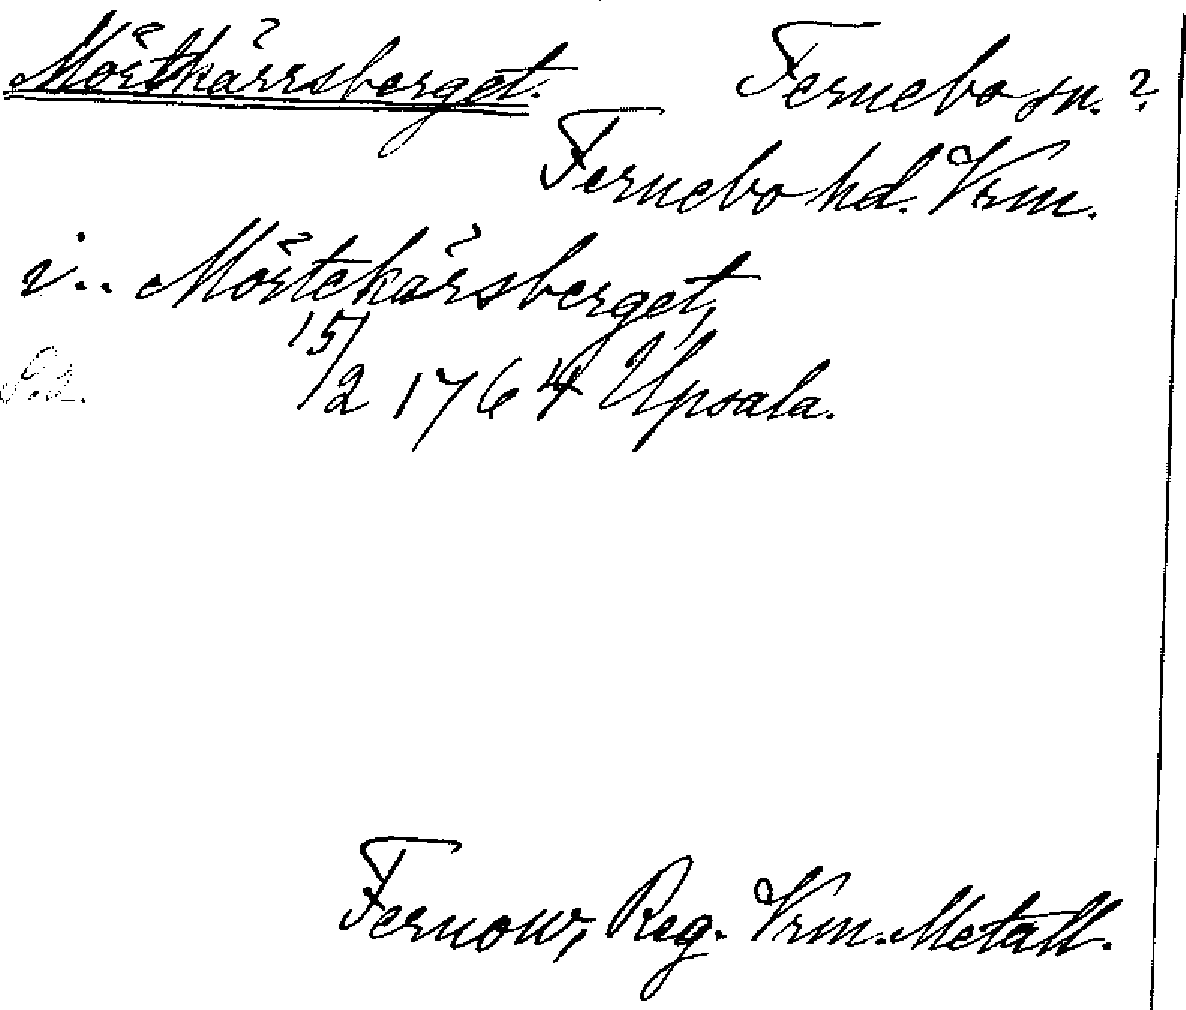 Mörtkärrsberget. Fernebo sn.?
Fernebo hd. Vrm.
i.. Mörtekärsberget,
15/2 1764 Upsala.
Fernow, Reg. Vrm. Metall.